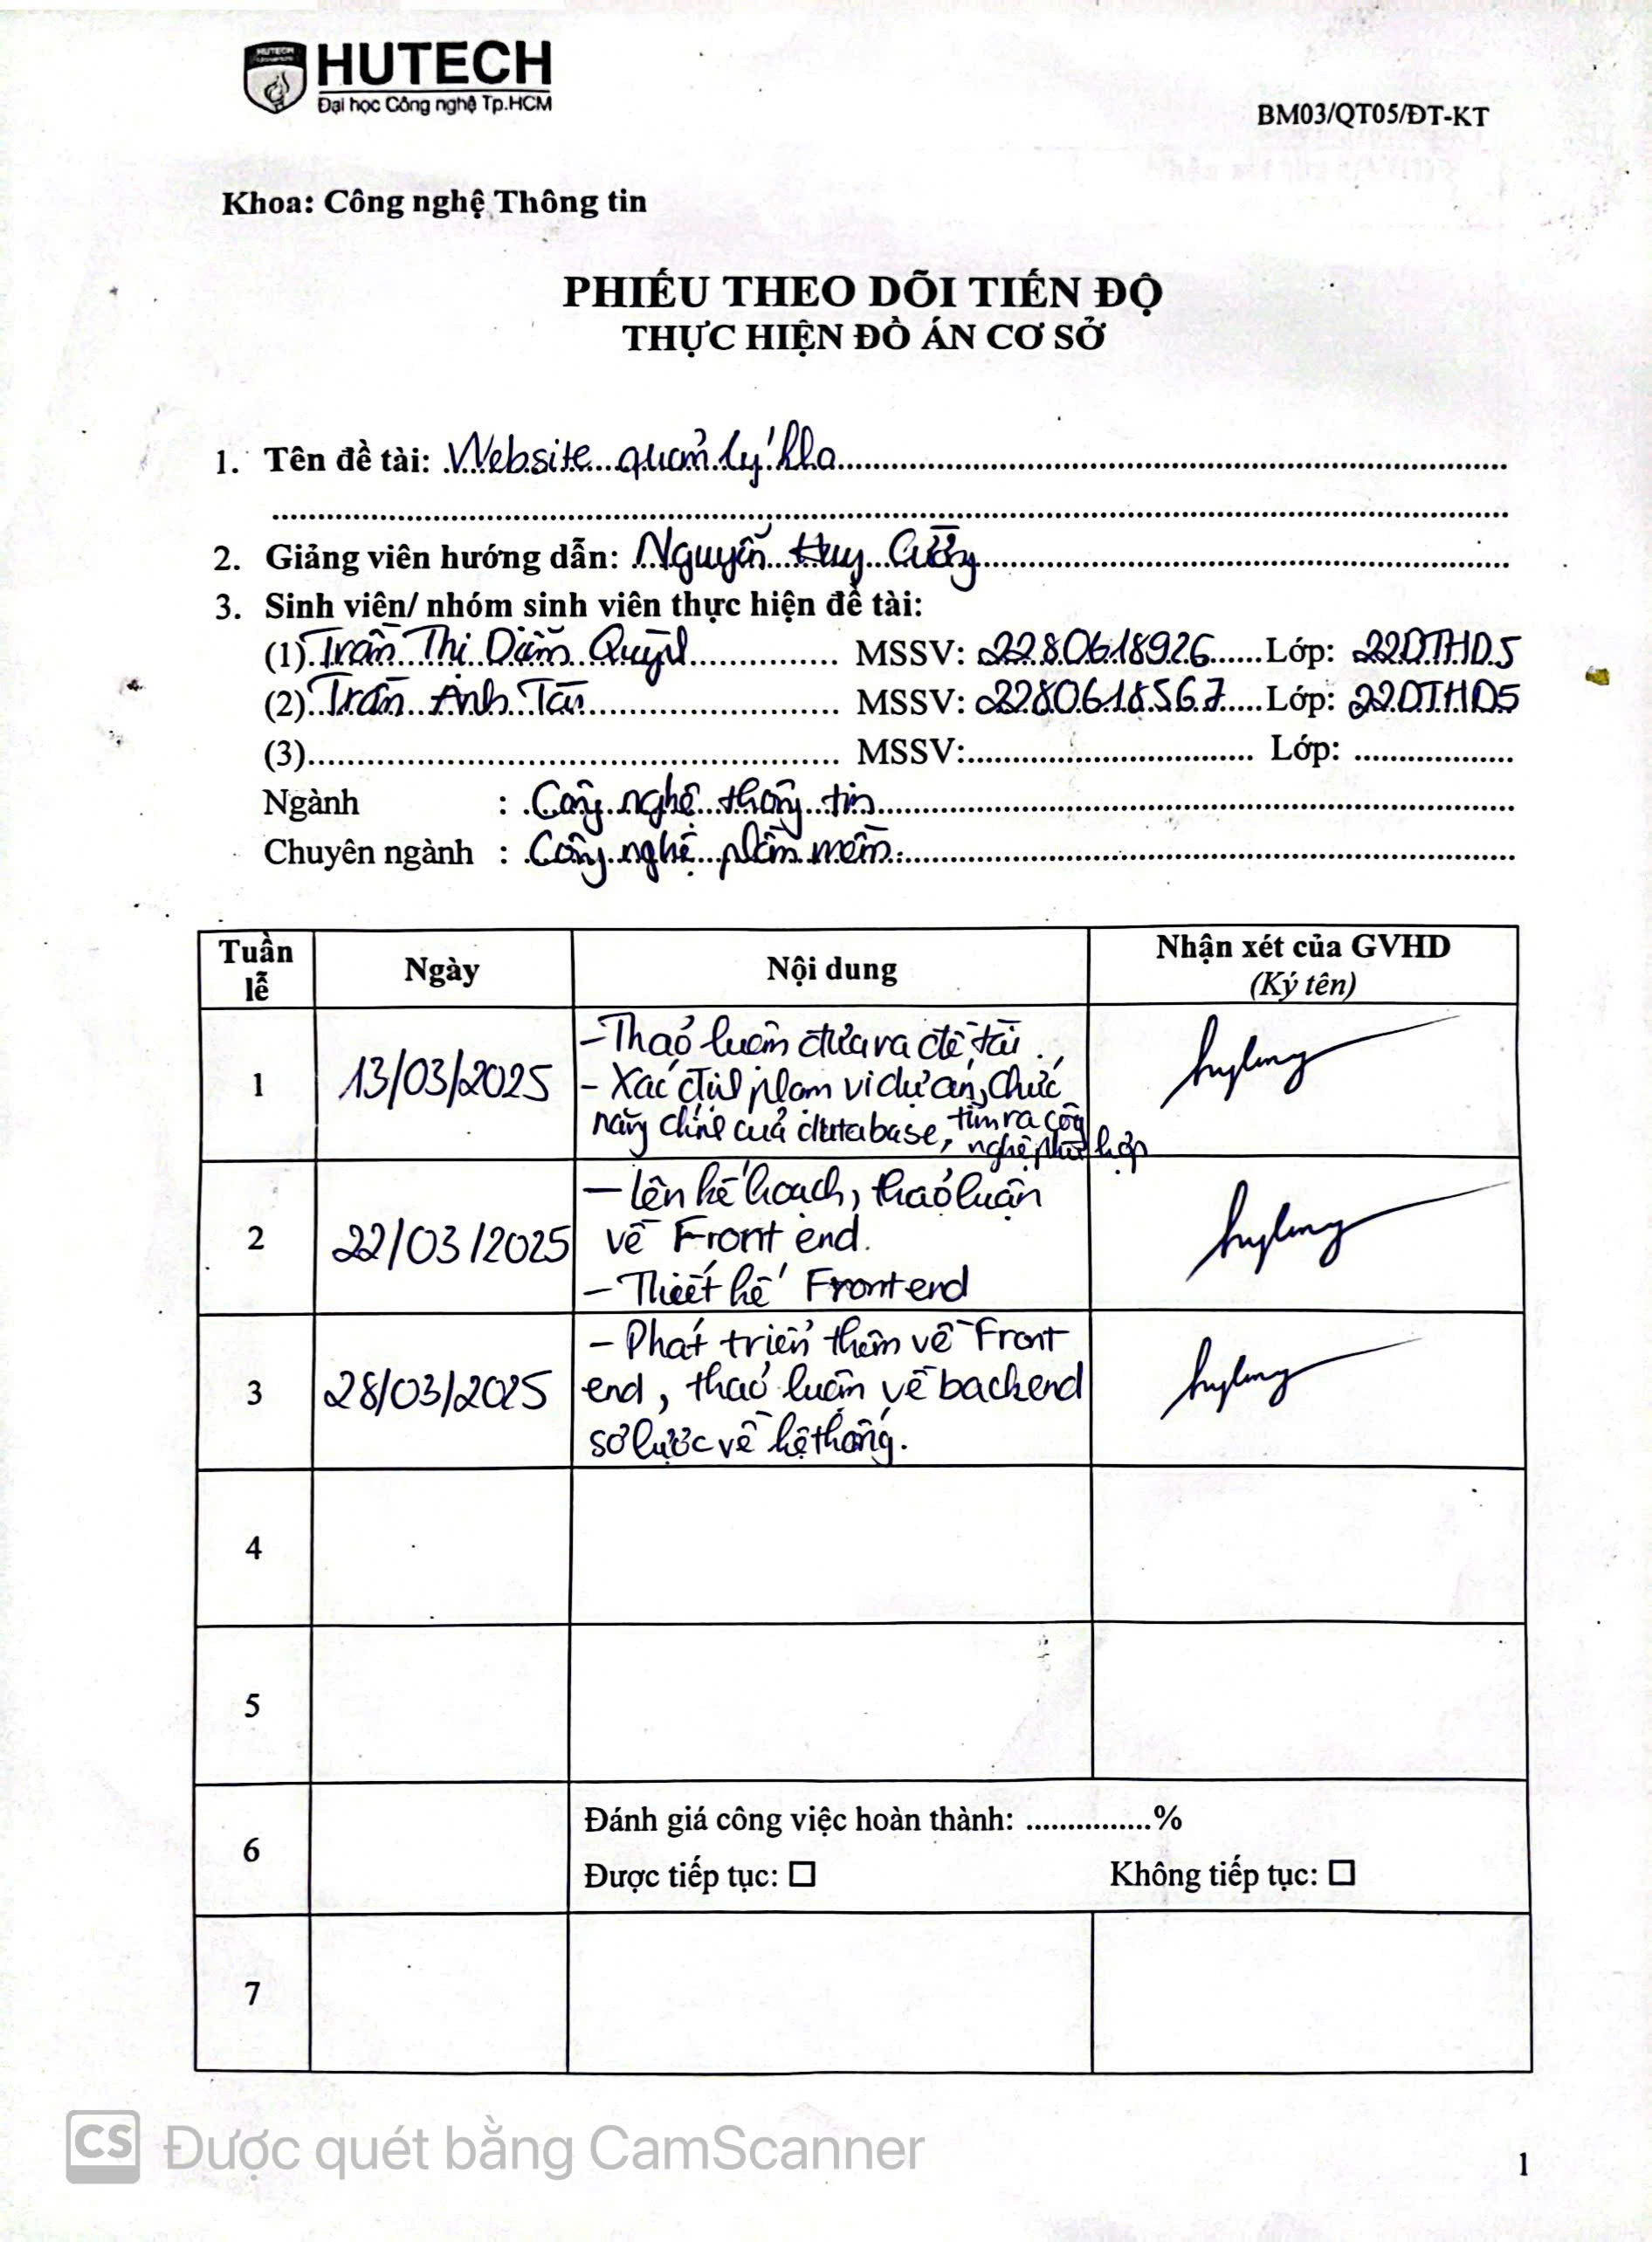 HUTECH
HUTECH
Đại học Công nghệ Tp.HCM
BM03/QT05/ĐT-KT
Khoa: Công nghệ Thông tin
PHIẾU THEO DÕI TIẾN ĐỘ
THỰC HIỆN ĐỒ ÁN CƠ SỞ
1. Tên đề tài: Website quản lý kho
2. Giảng viên hướng dẫn: Nguyễn Huy Cường
3. Sinh viên/ nhóm sinh viên thực hiện đề tài:
(1) Trần Thị Diễm Quỳnh MSSV: 2280618926 Lớp: 22DTHD5
(2) Trần Anh Tài MSSV: 2280618567 Lớp: 22DTHD5
(3) MSSV: Lớp:
Ngành : Công nghệ thông tin
Chuyên ngành : Công nghệ phần mềm
Tuần lễ Ngày Nội dung Nhận xét của GVHD
(Ký tên)
1 13/03/2025
- Thảo luận đưa ra đề tài.
- Xác định phạm vi dự án, chức
năng chính của database, tìm ra công
nghệ phù hợp
2 22/03/2025
- Lên kế hoạch, thảo luận
về Front end.
- Thiết kế Frontend
3 28/03/2025
- Phát triển thêm về Front
end, thảo luận về backend
sơ lược về hệ thống.
4
5
6
Đánh giá công việc hoàn thành: ...............%
Được tiếp tục: ☐ Không tiếp tục: ☐
7
CS Được quét bằng CamScanner
1